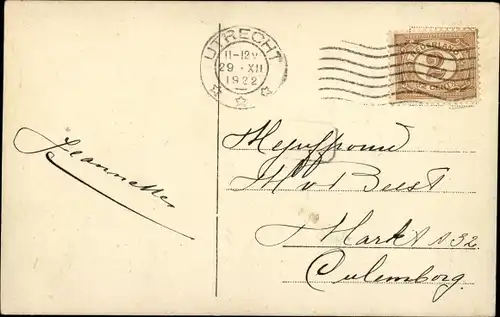 UTRECHT
11-12V
29.XII
1922
NEDERLAND
2
Jeannette
Mejuffrouw
M v Beest
Markt A 32
Culemborg.